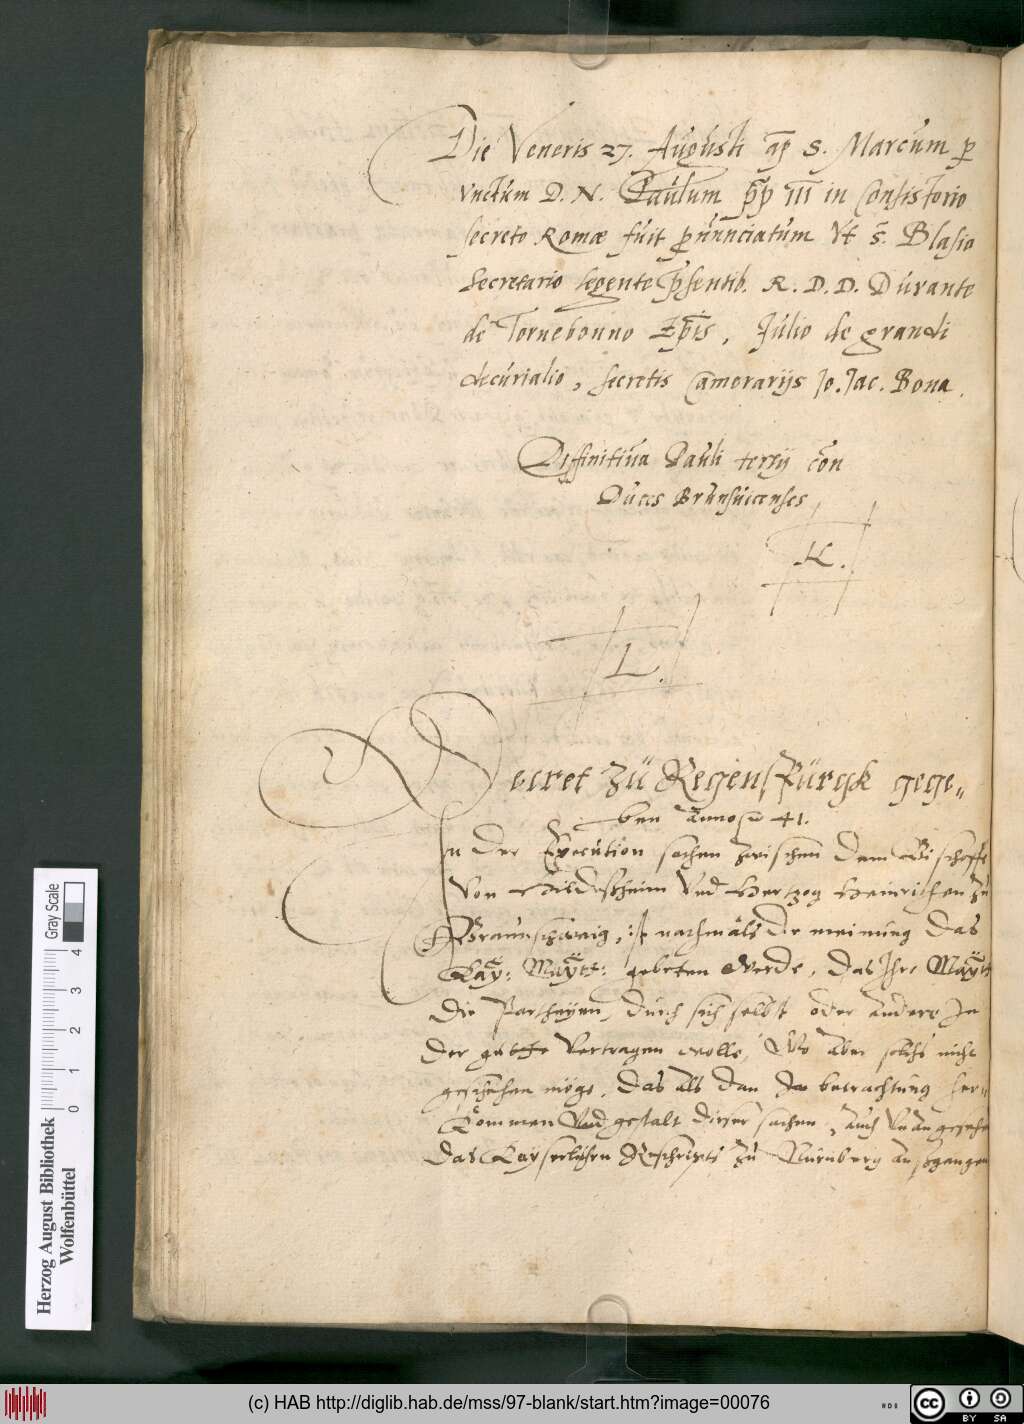 Die Veneris 27. Augusti ap̄ S. Marcum p
vnctum D. N. Paulum pp̄ III in Consistorio
secreto Romæ fuit pnūnciatum Vt s̄. Blasio
Secretario legente p̄sentib. R. D. D. Durante
de Tornebonno Ep̄is, Julio de grandi
decurialio, secretis Camerarijs Jo. Jac. Bona.
Diffinitiua Pauli tertij con̄
Duces Brunsuicenses
K.
L.
Decret zu Regenspurgk gege„
ben Anno 41.
In der Execution sachen zwischen dem Bischoffe
Von Hildesheim Vnd Hertzog Heinrichen zu
Braunschweig, Ist nachmals die meinung Das
Kay: Maytt: gebeten werde, das Ihre Maytt
die Partheyen, durch sich selbst oder andere In
der guthe Vertragen wolle, Wo aber solchs nicht
geschehen möge, das als dan In betrachtung her„
Kommen Vnd gestalt dieser sachen, auch Vnangesehen
das Kayserlichen Rescripts zu Nürnberg außgangen
Herzog August Bibliothek
Wolfenbüttel
Gray Scale
0 1 2 3 4
(c) HAB http://diglib.hab.de/mss/97-blank/start.htm?image=00076
cc BY SA